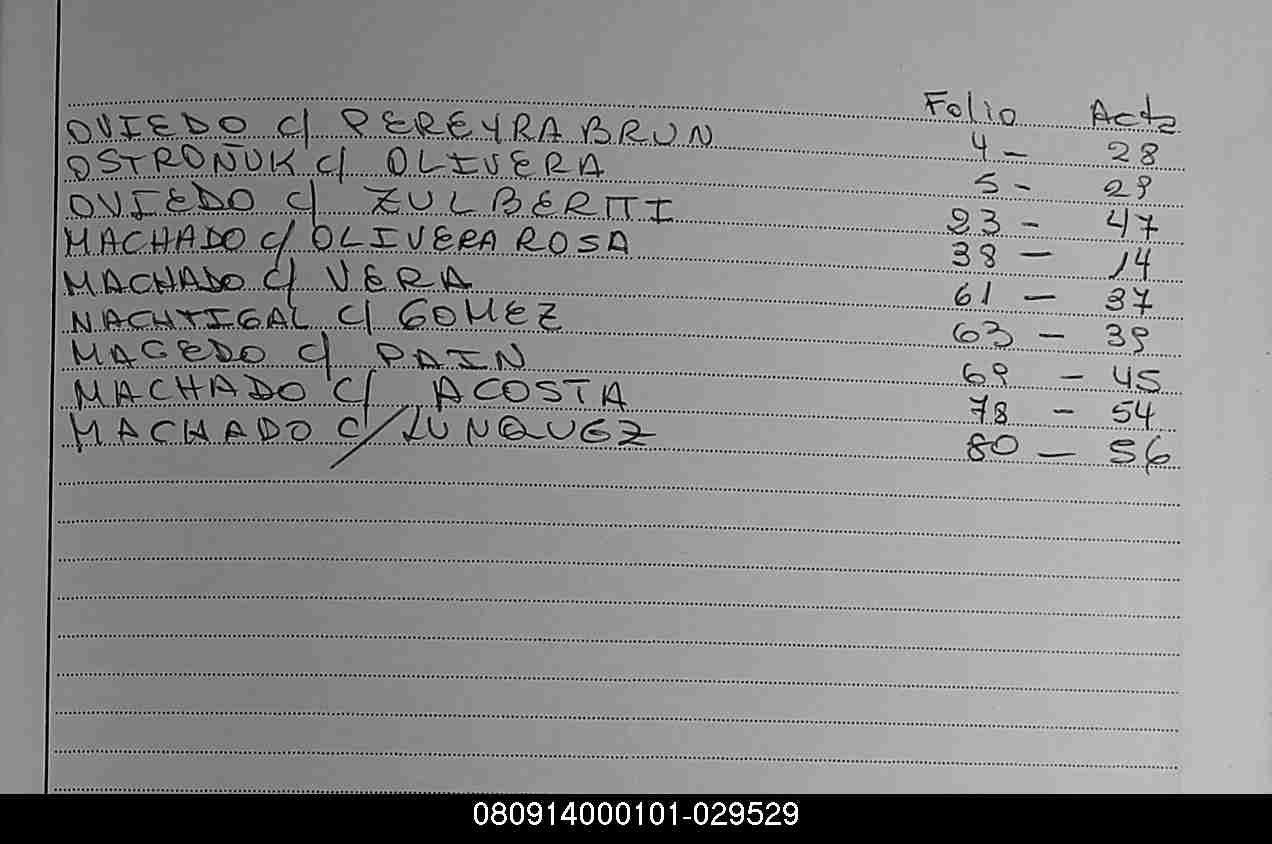 Folio Acta
OVIEDO c/ PEREYRA BRUN 4 - 28
OSTROÑUK c/ OLIVERA 5 - 29
OVIEDO c/ ZULBERTTI 23 - 47
MACHADO c/ OLIVERA ROSA 38 - 14
MACHADO c/ VERA 61 - 37
NACHTIGAL c/ GOMEZ 63 - 39
MACEDO c/ PAIN 69 - 45
MACHADO c/ ACOSTA 78 - 54
MACHADO c/ 80 - 56
080914000101-029529